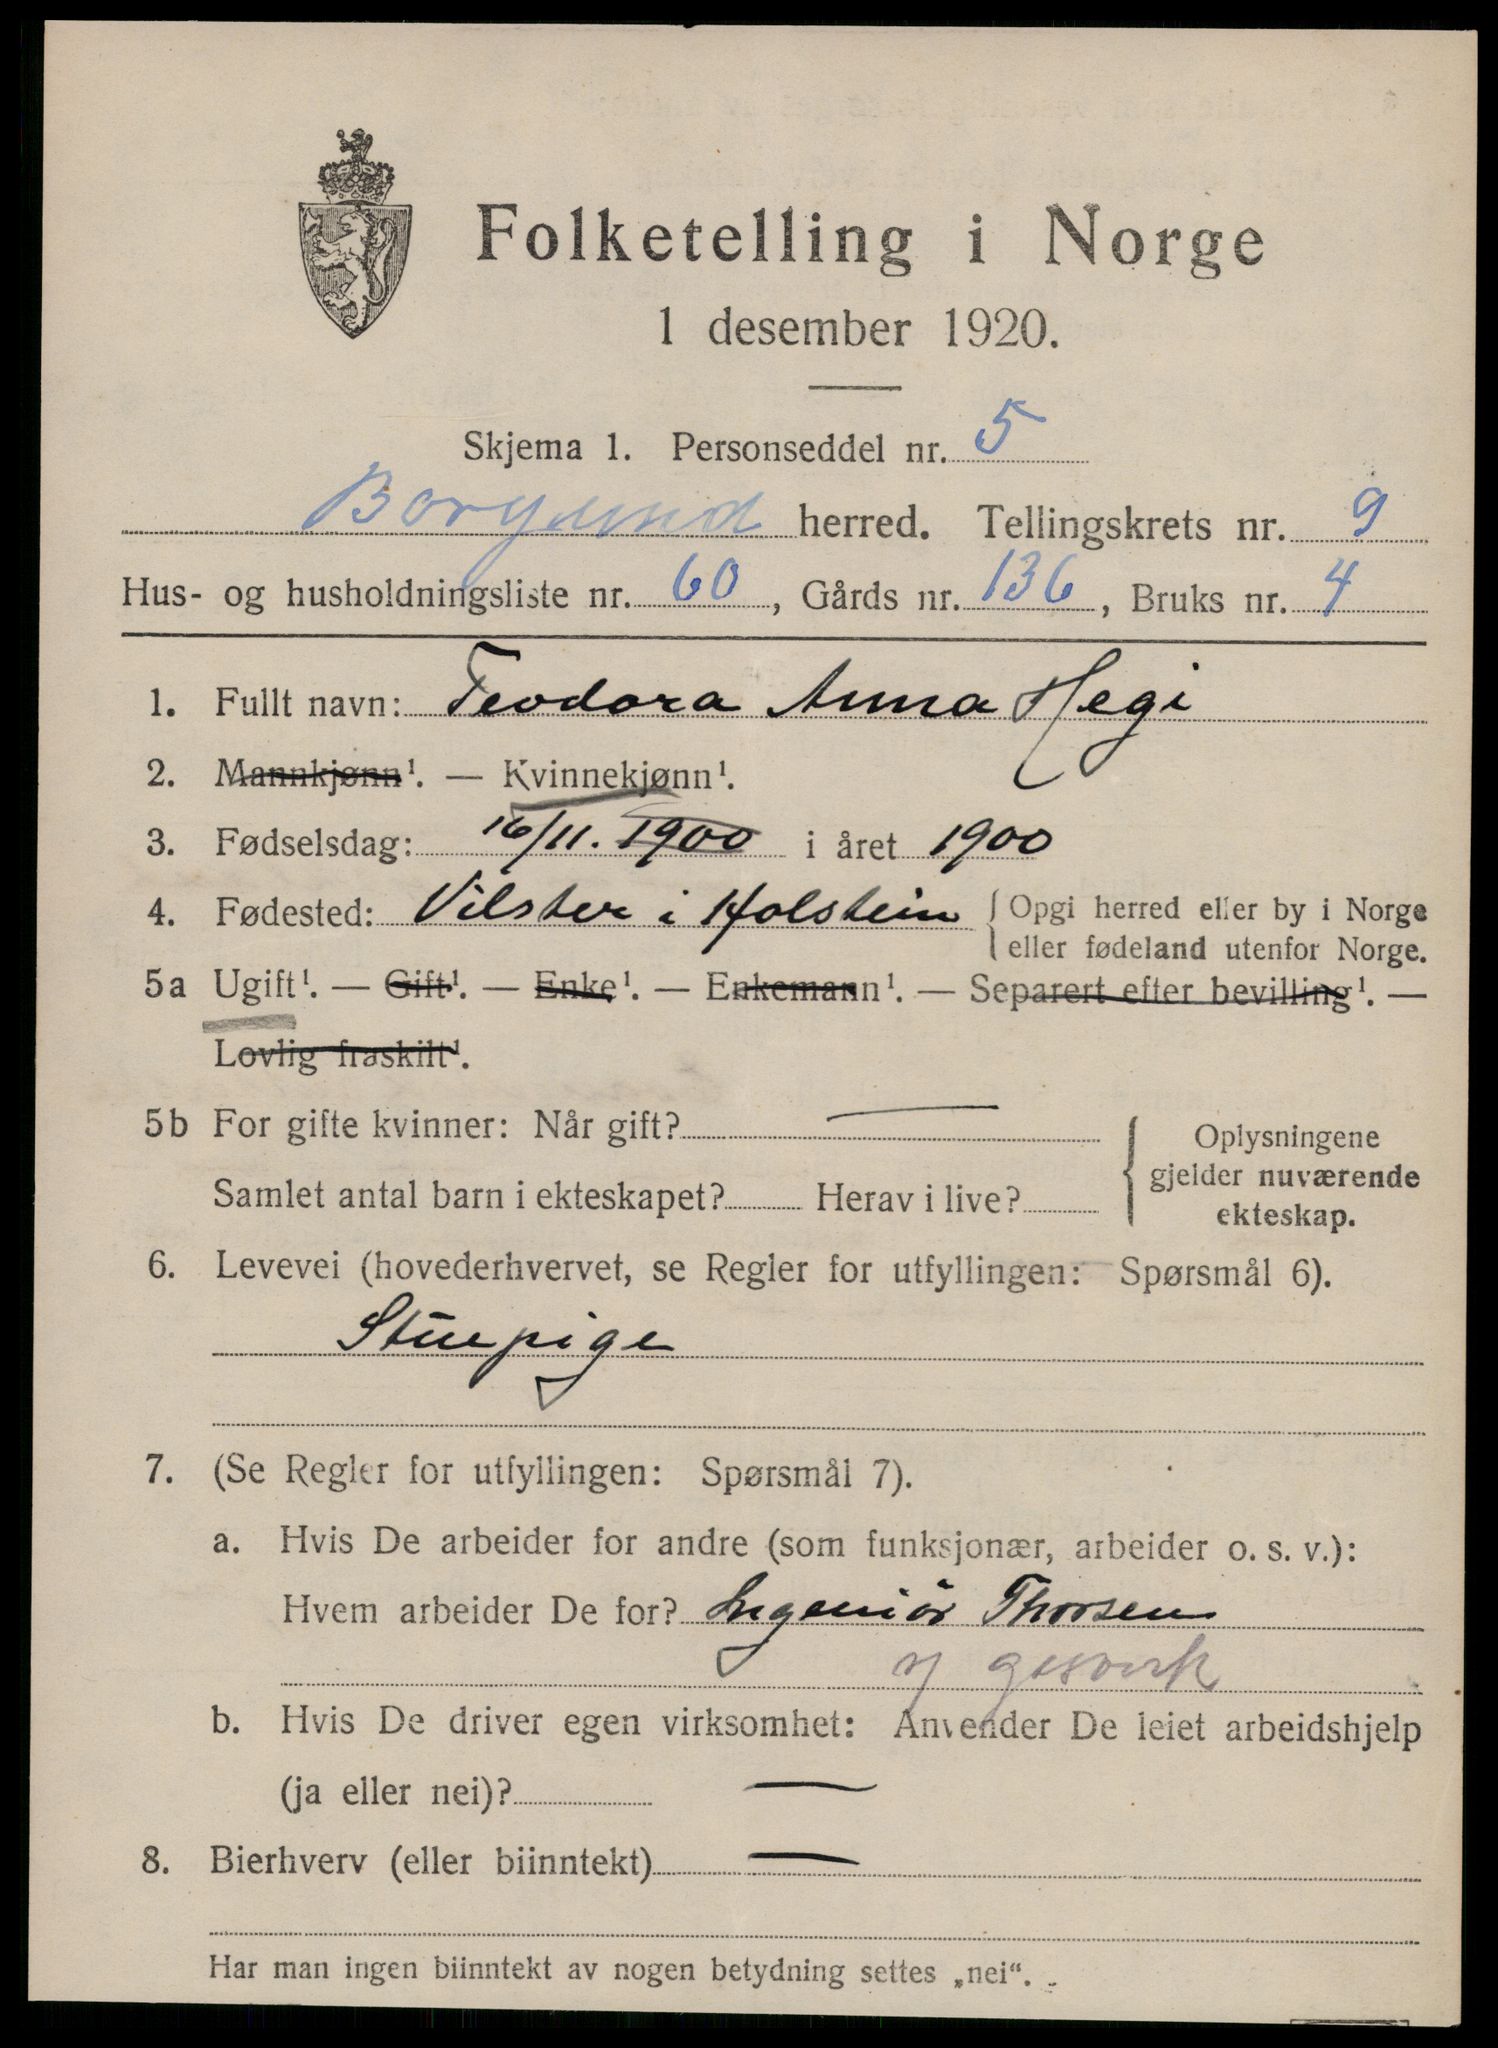 Folketelling i Norge
1 desember 1920.
Skjema 1. Personseddel nr. 5
Borgund herred. Tellingskrets nr. 9
Hus- og husholdningsliste nr. 60, Gårds nr. 136, Bruks nr. 4
1. Fullt navn: Teodora Anna Hegi
2. Mannkjønn¹. — Kvinnekjønn¹.
3. Fødselsdag: 16/11. 1900 i året 1900
4. Fødested: Vilster i Holstein { Opgi herred eller by i Norge
eller fødeland utenfor Norge.
5a Ugift¹. — Gift¹. — Enke¹. — Enkemann¹. — Separert efter bevilling¹. —
Lovlig fraskilt¹.
5b For gifte kvinner: Når gift? —
Samlet antal barn i ekteskapet? Herav i live?
{ Oplysningene
gjelder nuværende
ekteskap.
6. Levevei (hovederhvervet, se Regler for utfyllingen: Spørsmål 6).
Stuepige
7. (Se Regler for utfyllingen: Spørsmål 7).
a. Hvis De arbeider for andre (som funksjonær, arbeider o. s. v.):
Hvem arbeider De for? Ingeniör Thorsen
v/ gasverk
b. Hvis De driver egen virksomhet: Anvender De leiet arbeidshjelp
(ja eller nei)? —
8. Bierhverv (eller biinntekt) —
Har man ingen biinntekt av nogen betydning settes „nei“.